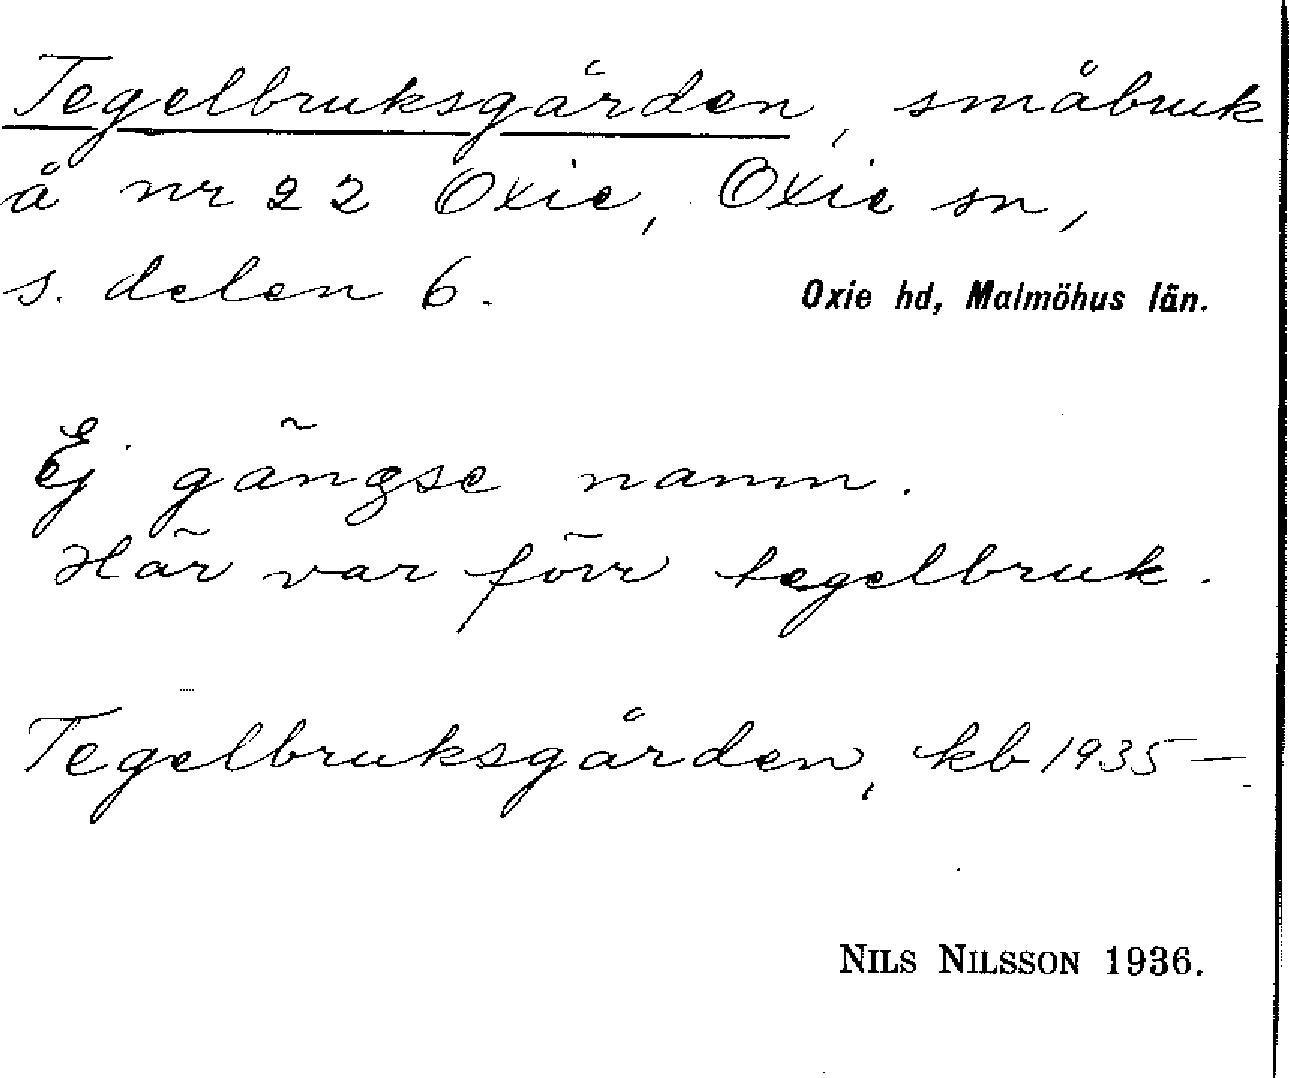 Tegelbruksgården, småbruk
å nr 22 Oxie, Oxie sn,
s. delen 6.
Oxie hd, Malmöhus län.
Ej gängse namn.
Här var förr tegelbruk.
Tegelbruksgården, kb 1935 —
NILS NILSSON 1936.